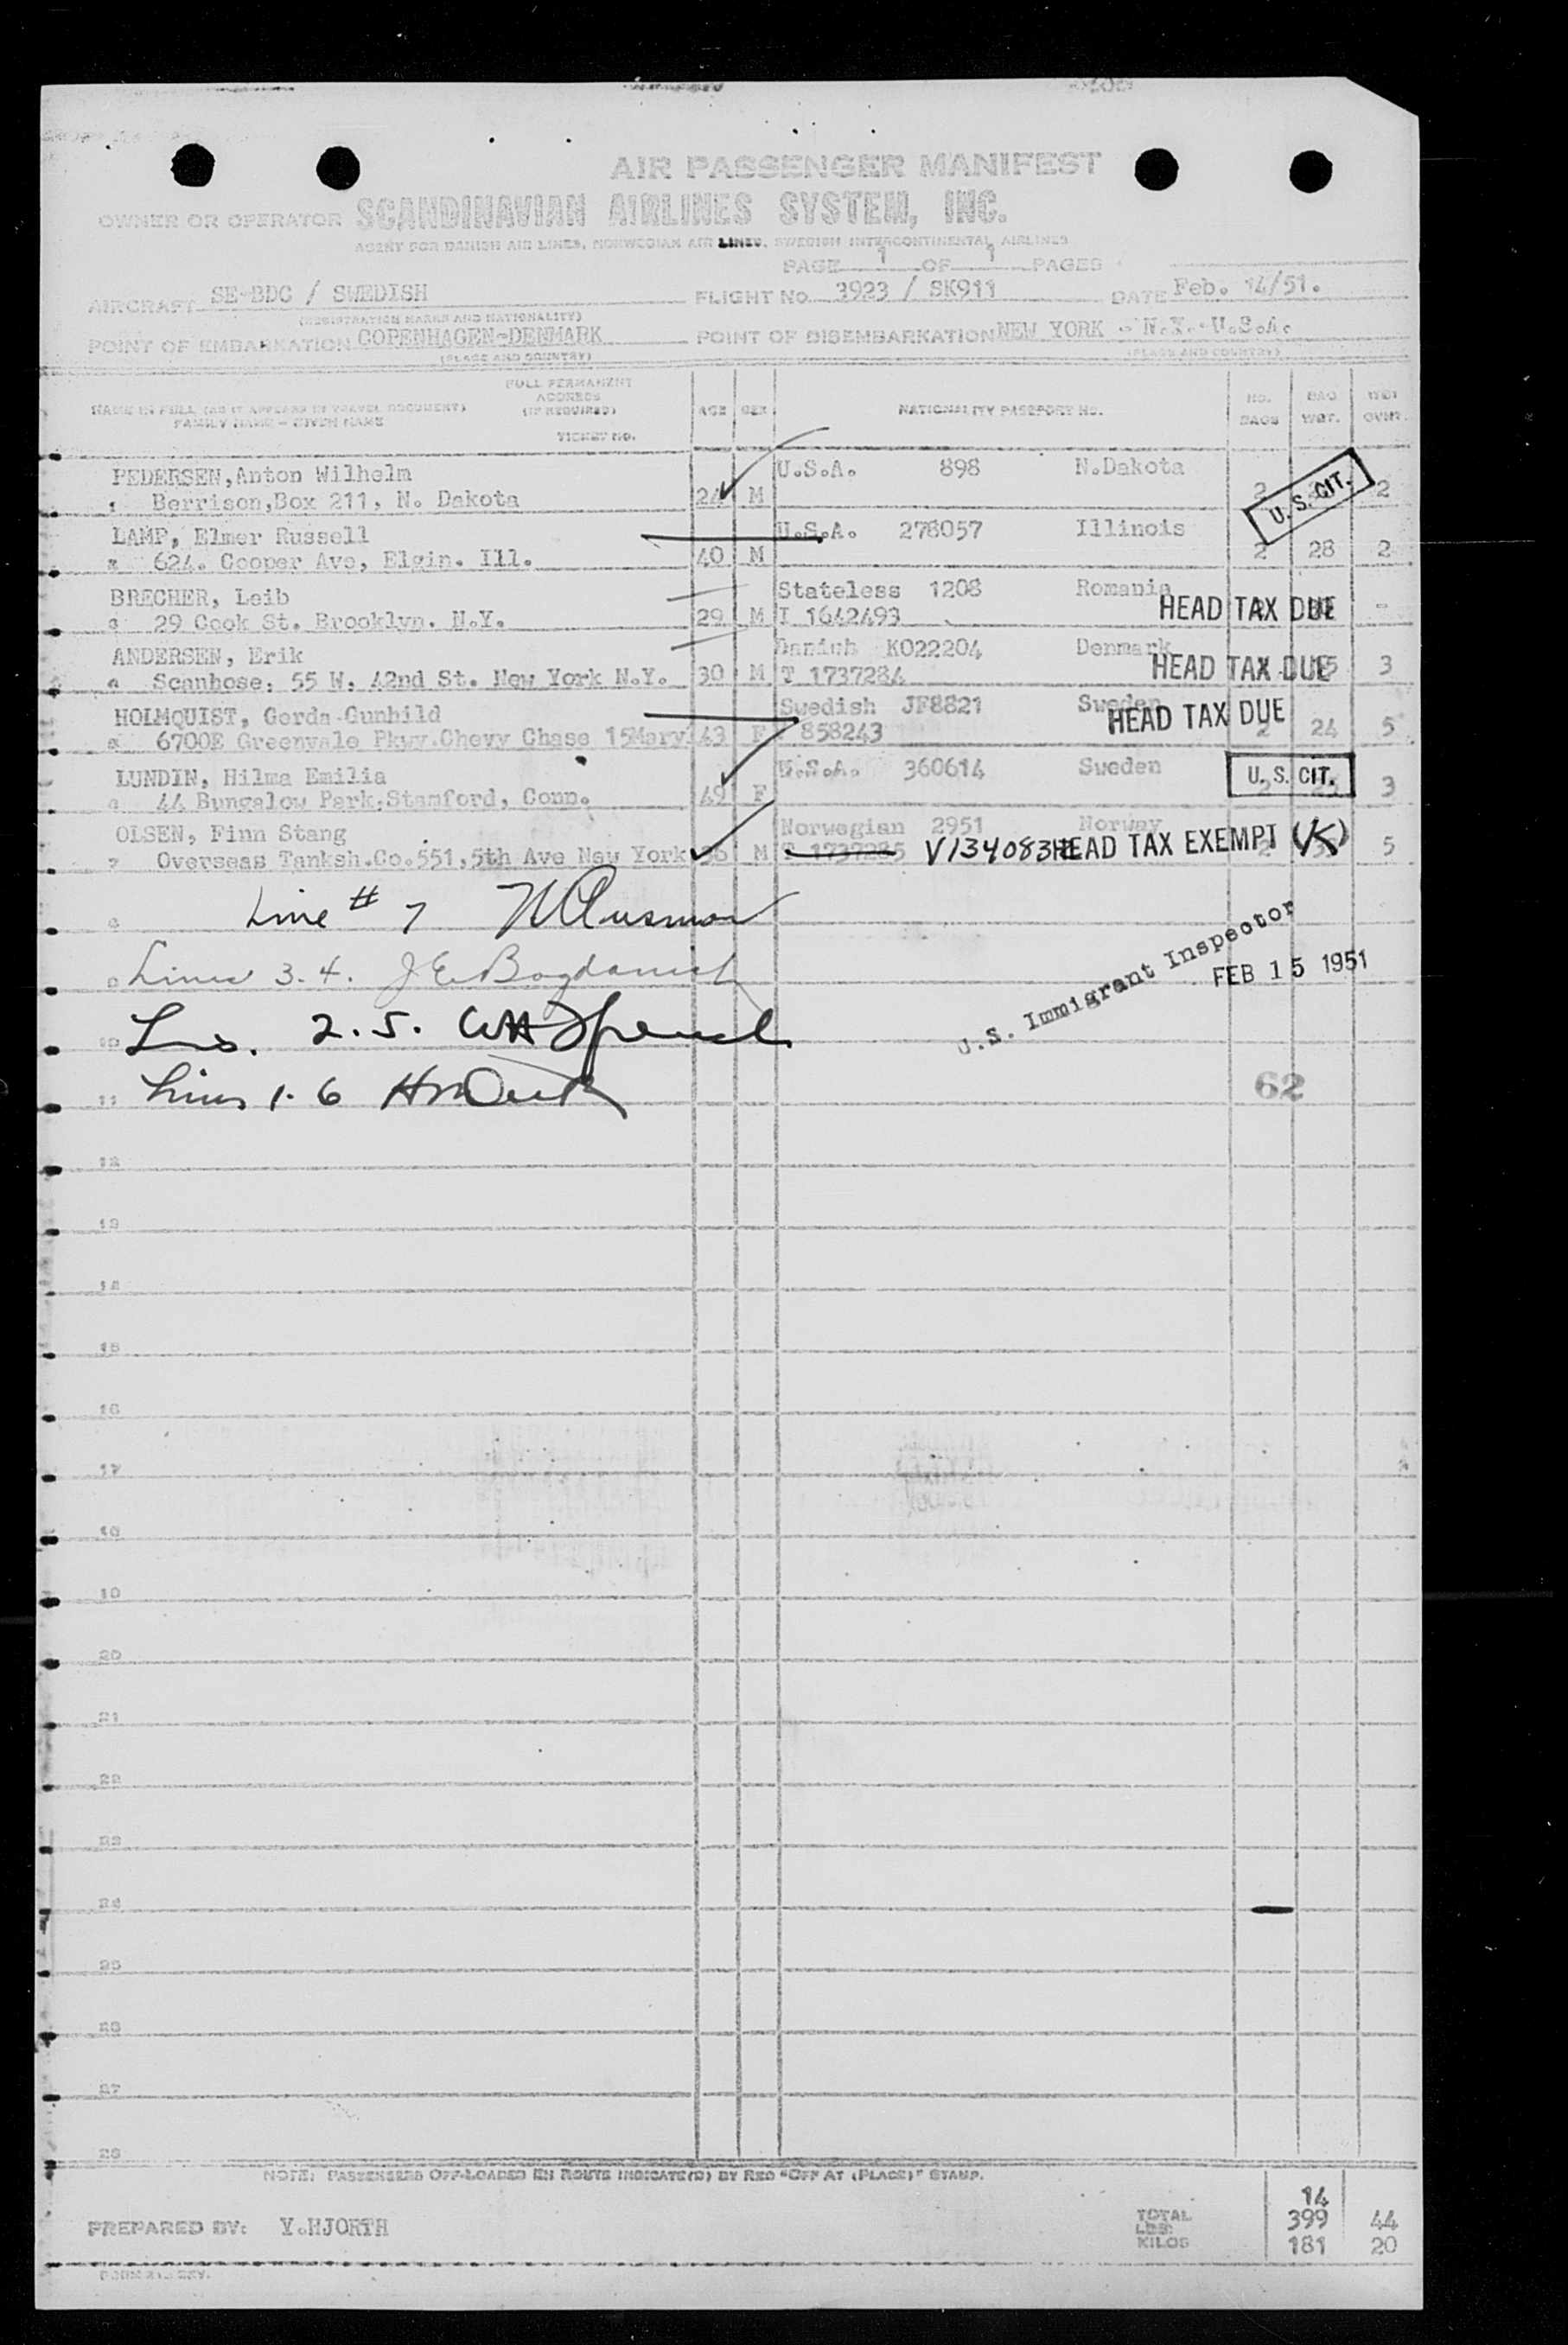 AIR PASSENGER MANIFEST
OWNER OR OPERATOR SCANDINAVIAN AIRLINES SYSTEM, INC.
AGENT FOR DANISH AIR LINES, NORWEGIAN AIR LINES, SWEDISH INTERCONTINENTAL AIRLINES
PAGE 1 OF 1 PAGES
AIRCRAFT SE-BDC / SWEDISH FLIGHT NO. 3923 / SK911 DATE Feb. 14/51.
(REGISTRATION MARKS AND NATIONALITY)
POINT OF EMBARKATION COPENHAGEN-DENMARK POINT OF DISEMBARKATION NEW YORK - N.Y. U.S.A.
(PLACE AND COUNTRY) (PLACE AND COUNTRY)
FULL PERMANENT
ADDRESS
NAME IN FULL (AS IT APPEARS IN TRAVEL DOCUMENT) (IF REQUIRED) AGE SEX NATIONALITY PASSPORT NO. NO. BAGS BAG WGT.
FAMILY NAME - GIVEN NAME
TICKET NO.
PEDERSEN,Anton Wilhelm U.S.A. 898 N.Dakota
1 Berrison,Box 211, N. Dakota 24 M 2 U.S. CIT. 2
LAMP, Elmer Russell U.S.A. 278057 Illinois
2 624. Cooper Ave, Elgin. Ill. 40 M 2 28 2
BRECHER, Leib Stateless 1208 Romania
3 29 Cook St. Brooklyn. N.Y. 29 M T 1642493 HEAD TAX DUE -
ANDERSEN, Erik Danish KO22204 Denmark
4 Scanhose. 55 W. 42nd St. New York N.Y. 30 M T 1737284 HEAD TAX DUE 3
HOLMQUIST, Gerda Gunhild Swedish JF8821 Sweden
5 6700E Greenvale Pkwy.Chevy Chase 15Mary 43 F 858243 HEAD TAX DUE 2 24 5
LUNDIN, Hilma Emilia U.S.A. 360614 Sweden
6 44 Bungalow Park,Stamford, Conn. 49 F U.S. CIT. 3
OLSEN, Finn Stang Norwegian 2951 Norway
7 Overseas Tanksh.Co.551,5th Ave New York 36 M T 1737285 V1340832 HEAD TAX EXEMPT (K) 5
8 Line # 7
9 Lines 3-4. J E Bogdanich
U.S. Immigrant Inspector
FEB 15 1951
10 Lns. 2.5.
11 Lines 1-6
62
12
13
14
15
16
17
18
19
20
21
22
23
24
25
26
27
28
NOTE: PASSENGERS OFF-LOADED EN ROUTE INDICATE(D) BY RED "OFF AT (PLACE)" STAMP.
14
PREPARED BY: V.HJORTH TOTAL LBS: 399 44
KILOS 181 20